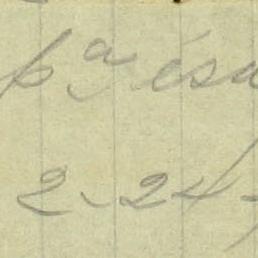 pª esa
2-24-